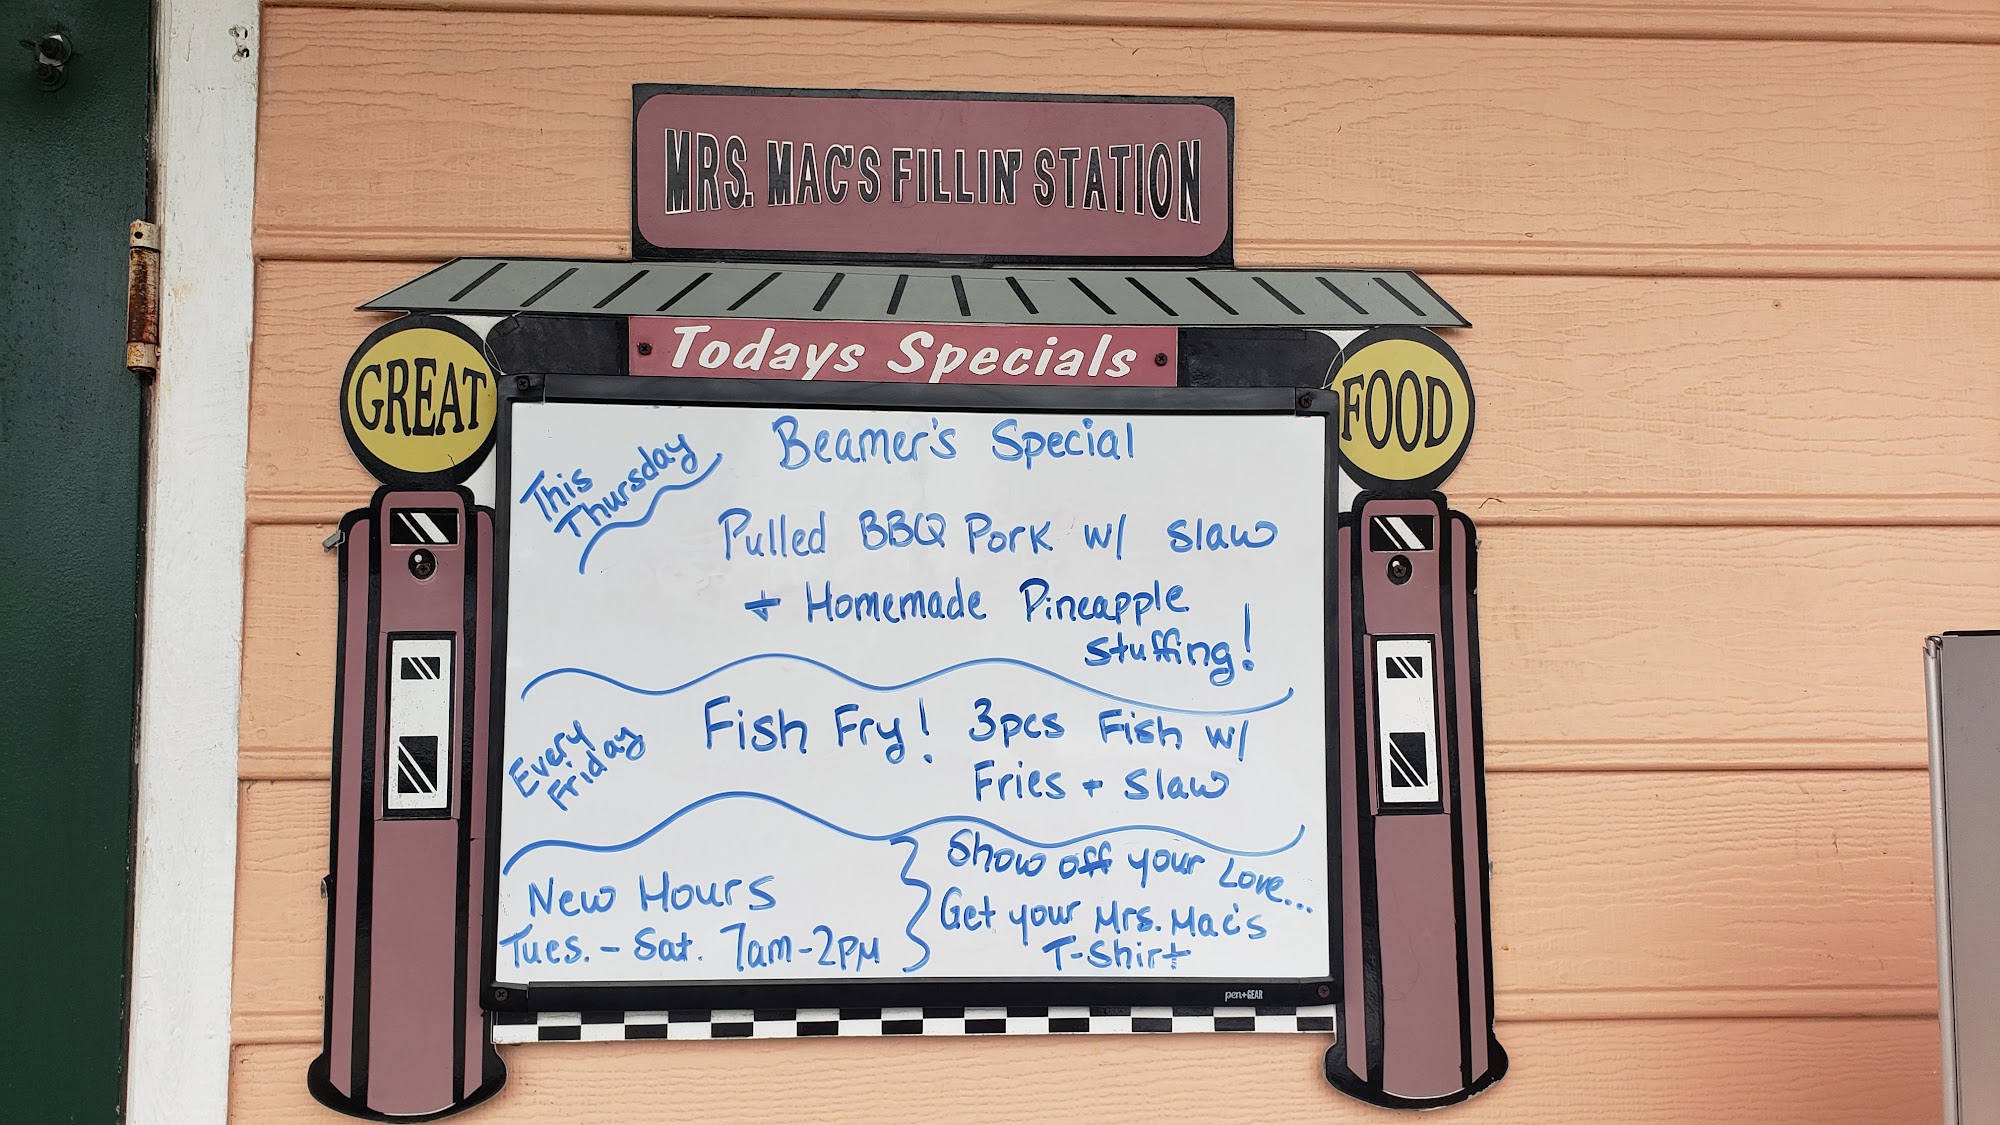 MRS. MAC'S FILLIN' STATION
Todays Specials
GREAT
FOOD
This
Thursday
Beamer's Special
Pulled BBQ Pork w/ slaw
+ Homemade Pineapple
stuffing!
Every
Friday
Fish Fry! 3pcs Fish w/
Fries + slaw
New Hours
Tues. - Sat. 7am-2pm
Show off your Love...
Get your Mrs. Mac's
T-Shirt
pen+GEAR